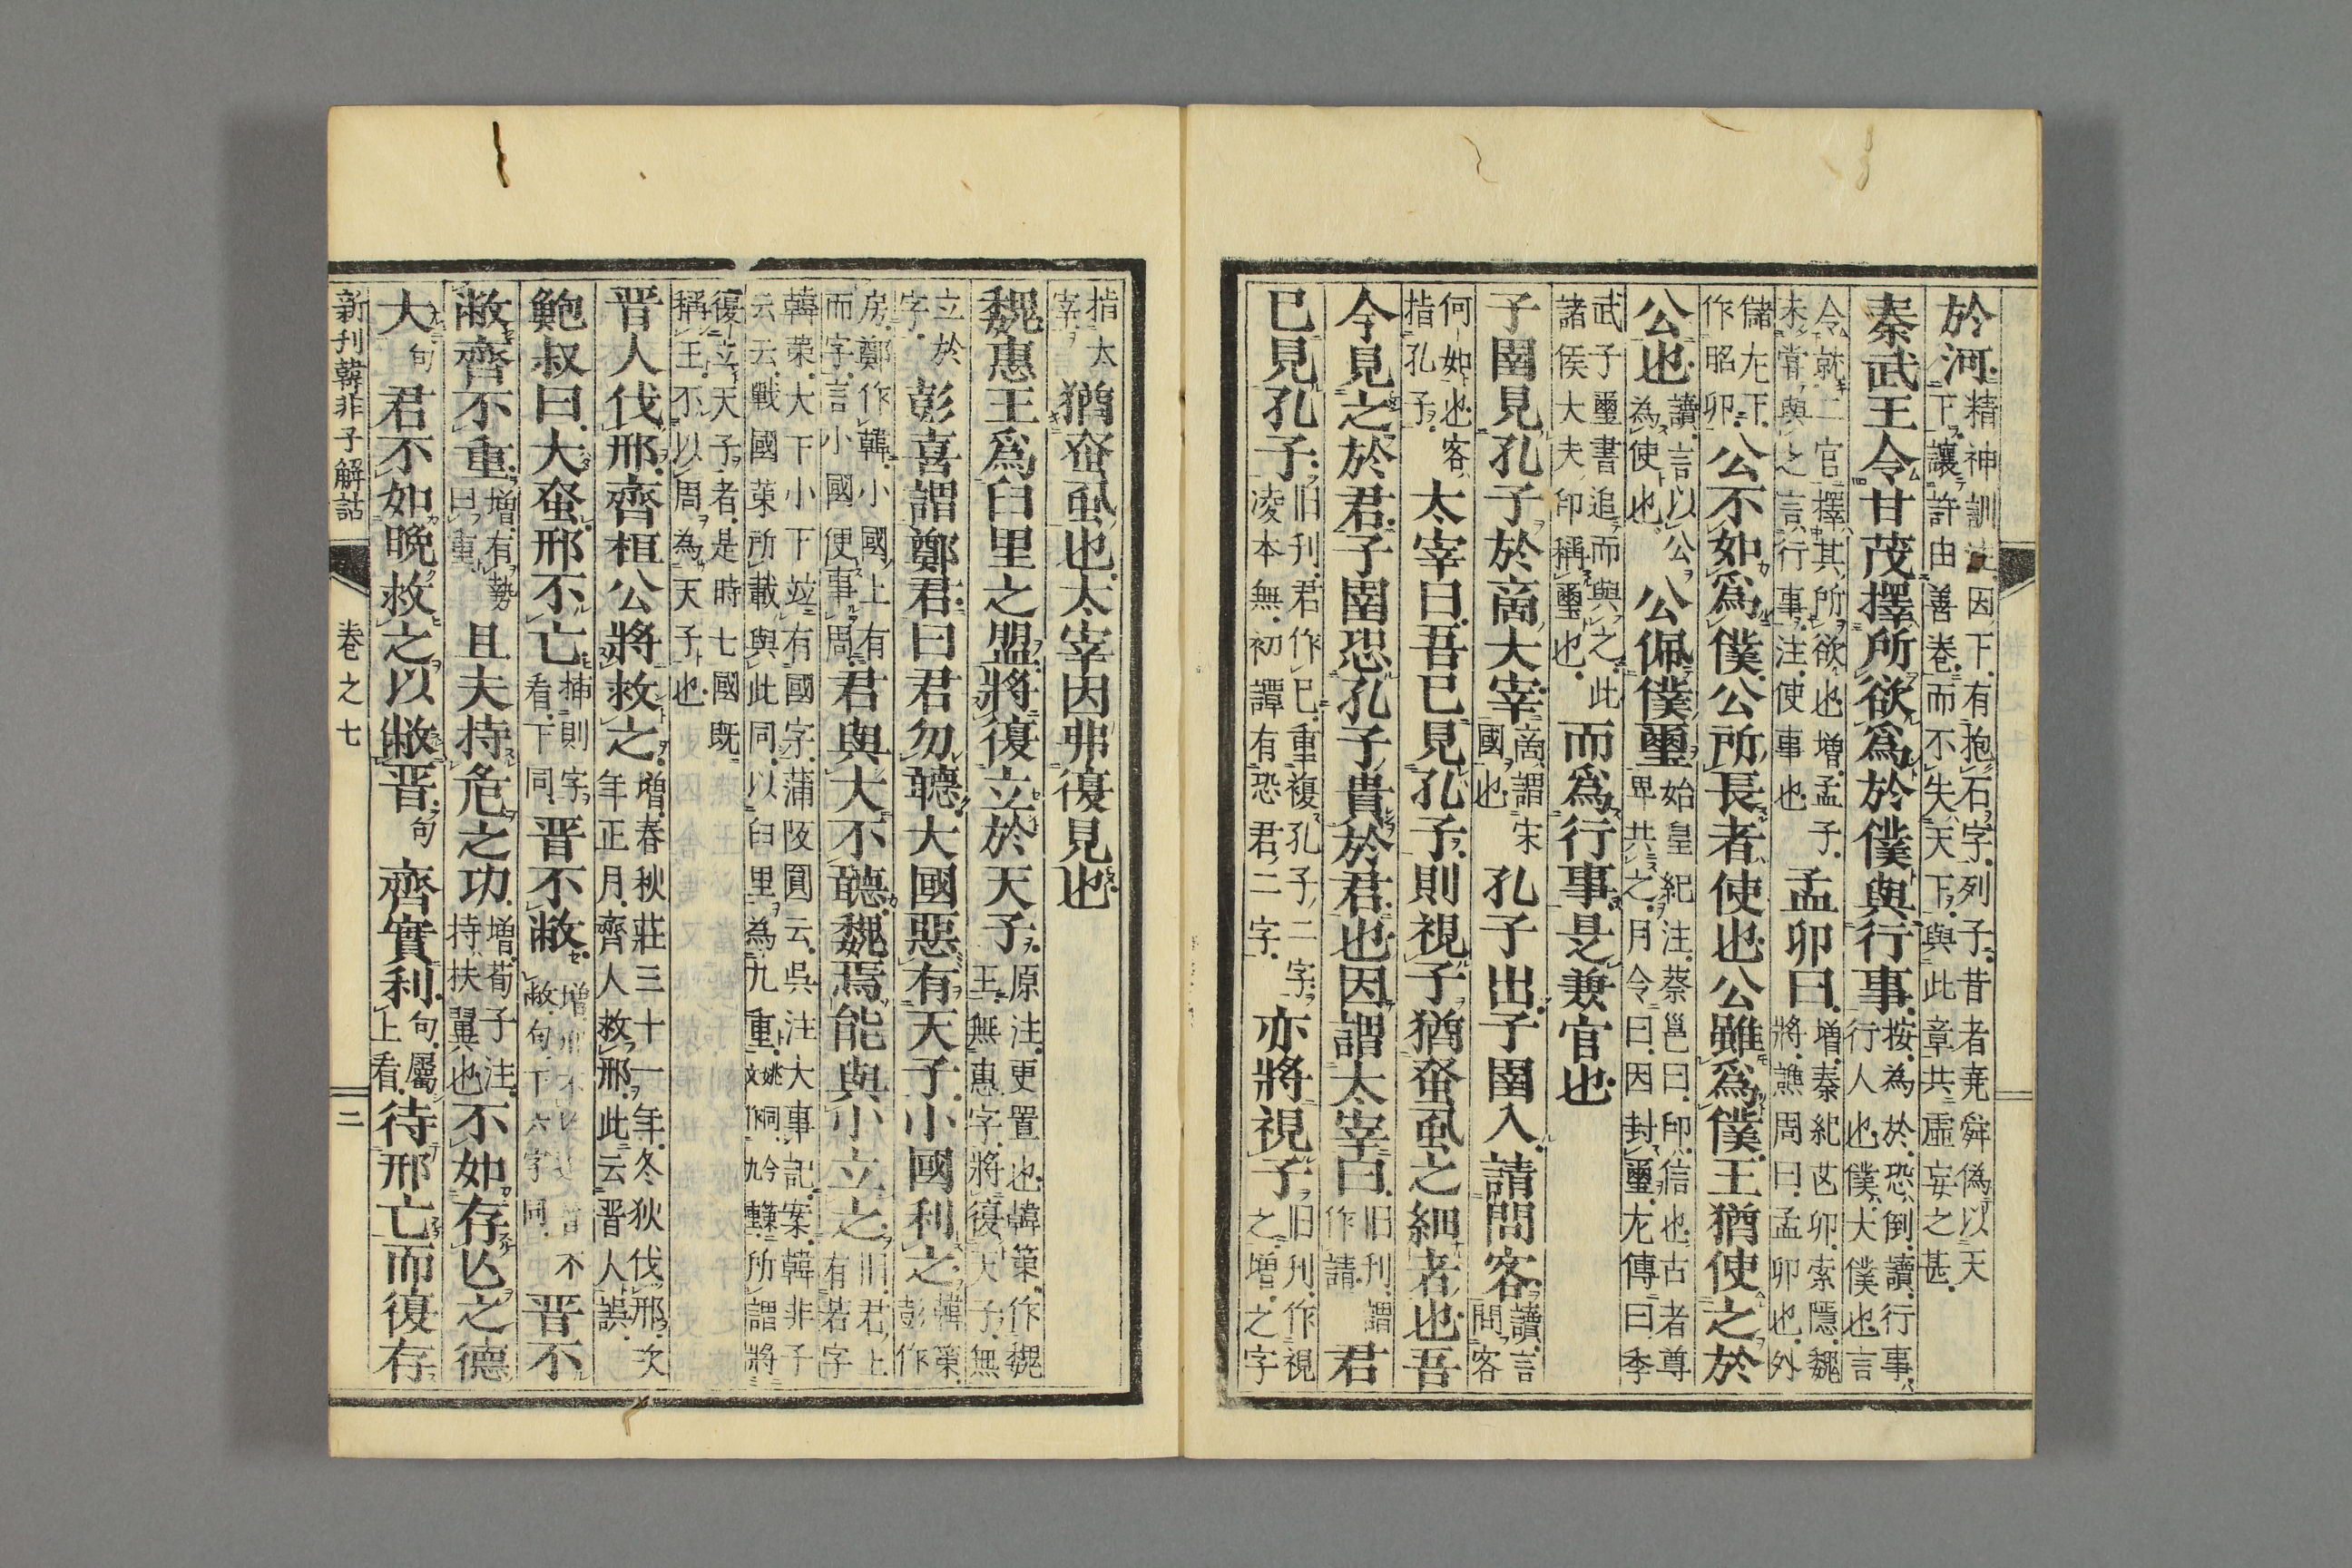 於河精神訓注因下有抱石字列子昔者堯舜僞以天
下讓許由善卷而不失天下與此章共虛妄之甚
秦武王令甘茂擇所欲爲於僕與行事按為於恐倒讀行事
行人也僕大僕也言
令就二官擇其所欲也増孟子
未嘗與之言行事注使事也孟卯曰増秦紀芒卯索隱魏
將譙周曰孟卯也外
儲左下
作昭卯公不如爲僕公所長者使也公雖爲僕王猶使之於
公也讀言以公
為使也公佩僕璽始皇紀注蔡邕曰印信也古者尊
卑共之月令曰因封璽左傳曰季
武子璽書追而與之此
諸侯大夫印稱璽也而爲行事是兼官也
子圉見孔子於商大宰商謂宋
國也孔子出子圉入請問客讀言
問客
何如也客
指孔子太宰曰吾已見孔子則視子猶蚤虱之細者也吾
今見之於君子圉恐孔子貴於君也因謂太宰曰旧刊謂
作請君
已見孔子旧刊君作已重複孔子二字
凌本無初譚有恐君二字亦將視子旧刊作視
之増之字
指太
宰猶蚤虱也太宰因弗復見也
魏惠王爲臼里之盟將復立於天子原注更置也韓策作魏
王無惠字將復天子無
立於
字彭喜謂鄭君曰君勿聽大國惡有天子小國利之韓策
彭作
房鄭作韓小國上有
而字言小國便事周君與大不聽魏焉能與小立之旧君上
有若字
韓策大下小下竝有國字蒲阪圓云吳注大事記案韓非子
云云戰國策所載與此同以臼里為九重姚校作九重所謂將
復立天子者是時七國既
稱王不以周為天子也
晋人伐邢齊桓公將救之増春秋莊三十一年冬狄伐邢次
年正月齊人救邢此云晋人誤
鮑叔曰大蚤邢不亡揷則字
看下同晋不敝敝句下六字同晋不
敝齊不重増有勢
曰重且夫持危之功増荀子注
持扶翼也不如存亾之德
大句君不如晚救之以敝晋句齊實利句屬
上看待邢亡而復存
新刊韓非子解詁　卷之七　二